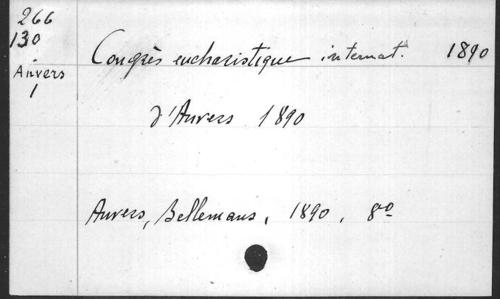 266
130
Anvers
1
Congrès eucharistique internat. 1890
d'Anvers 1890
Anvers, Bellemans, 1890, 8º